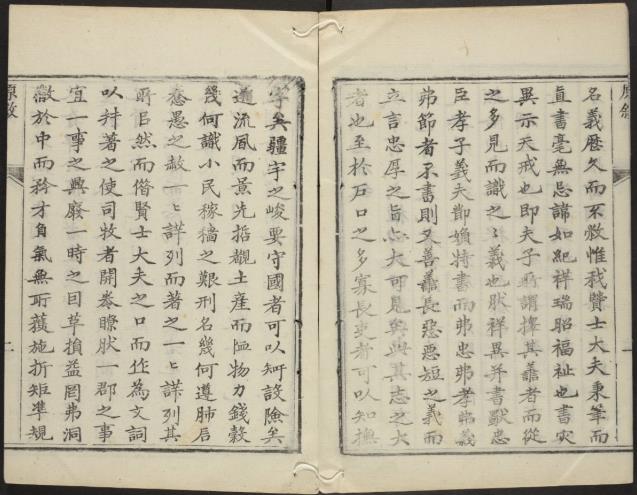 名義歷久而不敝惟我贊士大夫秉筆而
直書毫無忌諱如紀祥瑞昭福祉也書灾
異示天戒也即夫子所謂擇其善者而從
之多見而識之之義也肰祥異并書獸忠
臣孝子義夫節婦特書而弗忠弗孝弗義
弗節者不書則又善善長惡惡短之義而
立言忠厚之旨亦大可見與此其志之大
者也至於戶口之多寡長吏者可以知撫
字矣疆宇之峻要守國者可以知設險矣
遡流風而景先喆觀土産而恤物力錢穀
幾何識小民稼穡之艱刑名幾何遵肺石
憃愚之赦一一詳列而著之一一詳列其
所㠯然而借賢士大夫之口而作為文詞
以幷著之使司牧者開卷瞭肰一郡之事
宜一事之興廢一時之因革損益罔弗洞
徹於中而矜才負氣無所護施折矩準規
原敘